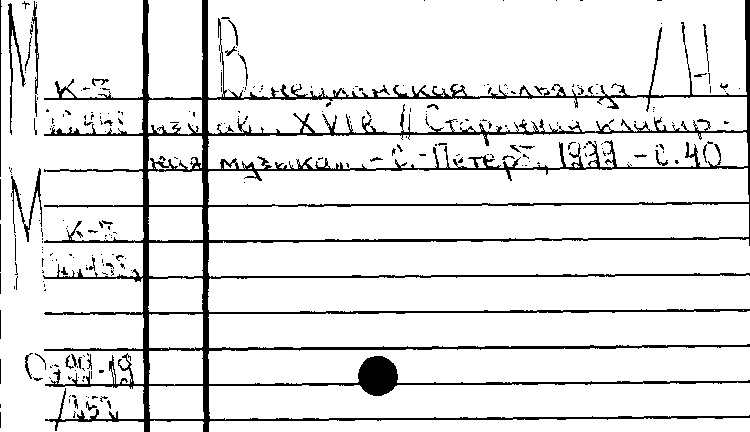 М Венецианская гальярда / Н.
К-3 изв. ав., XVI в. // Старинная клавир-
ная музыка... - С.-Петерб., 1999. - С. 40
М
К-3
Оэ 99-19
/252